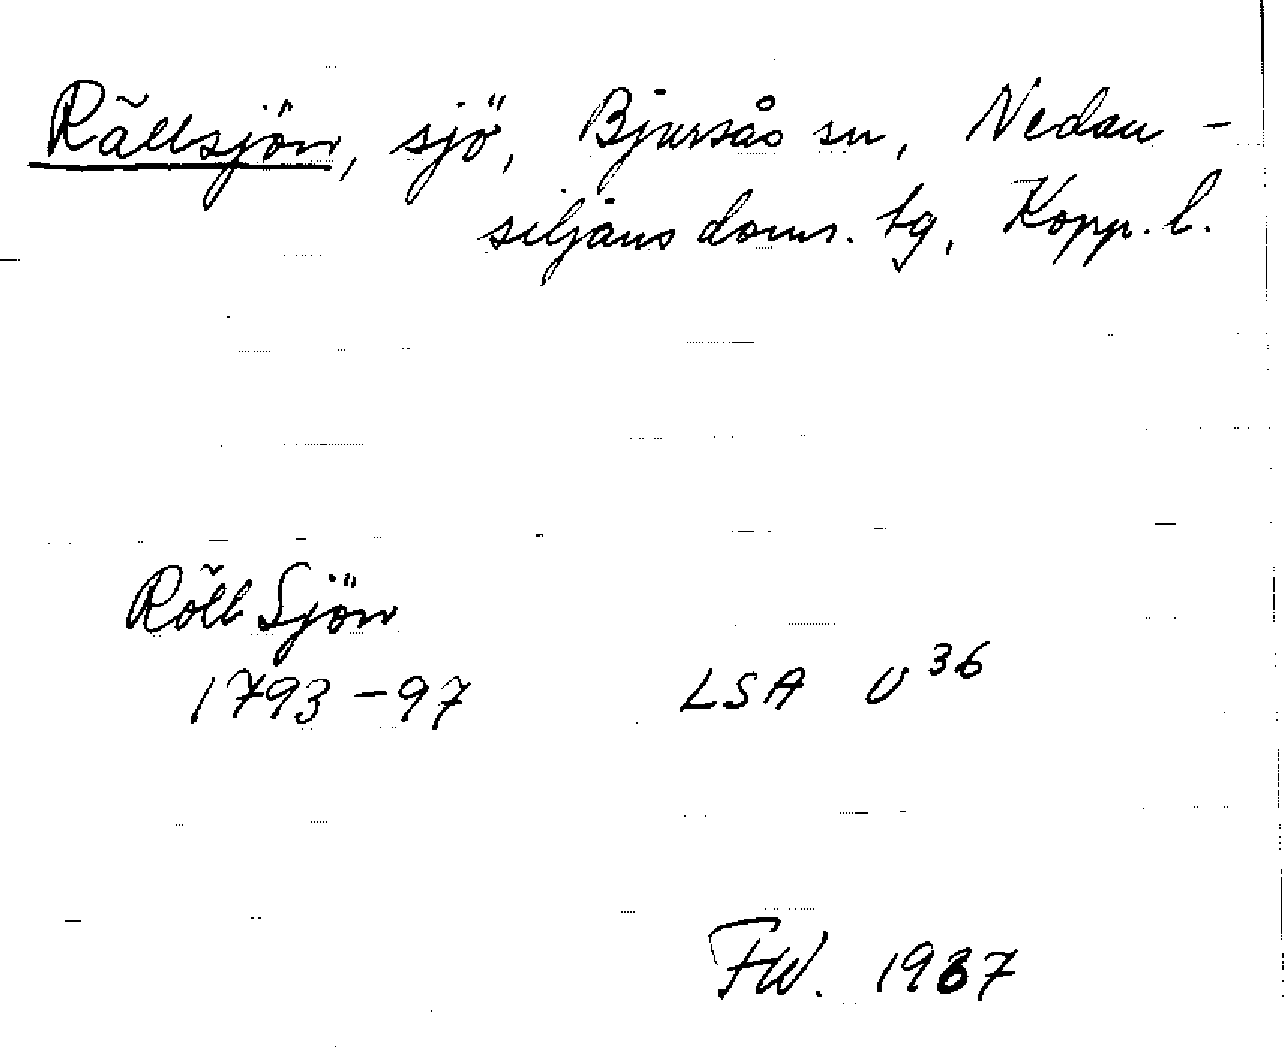 Rällsjön, sjö, Bjursås sn, Nedan-
siljans doms. tg, Kopp. l.
Röll Sjön
1793-97 LSA U 36
FW. 1937